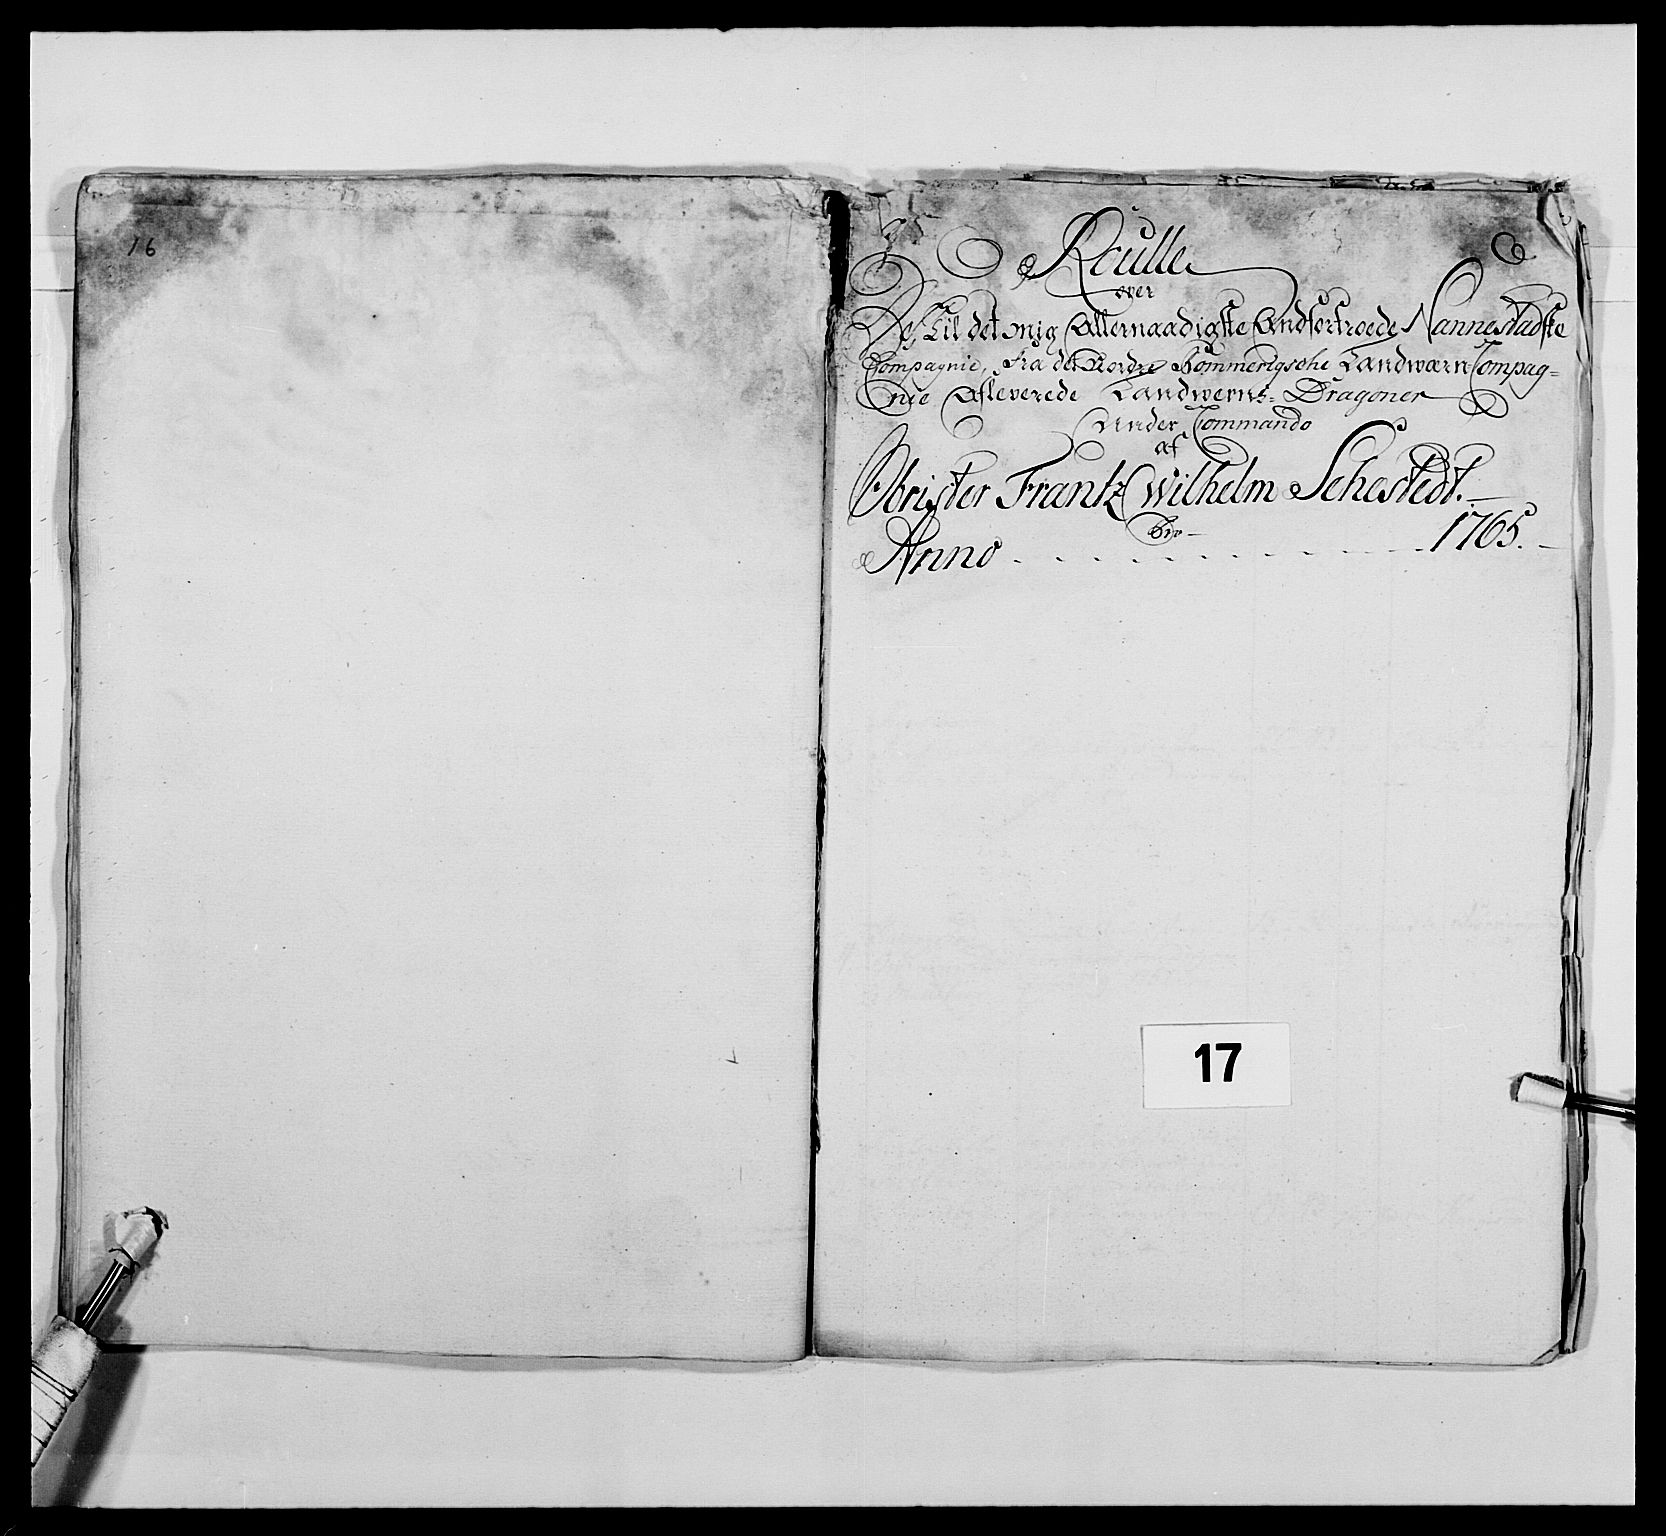 16
Roulle
over
De, til det mig Allernaadigste Andfortroede Nannestadske
Compagnie, fra det Nordre Rommerigsche Landwærn Compag=
nie Afleverede Landwerns= Dragoner
Under Commando
af
Obrister Frantz Wilhelm Sehestedt.
Anno 1765.
17